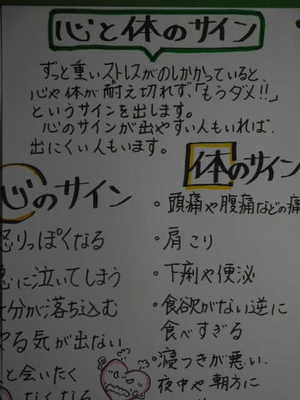 心と体のサイン
ずっと重いストレスがのしかかっていると、
心や体が耐え切れず、「もうダメ!!」
というサインを出します。
心のサインが出やすい人もいれば、
出にくい人もいます。
心のサイン
怒りっぽくなる
に泣いてしまう
分が落ち込む
やる気が出ない
と会いたく
なくなる
体のサイン
・頭痛や腹痛などの痛
・肩こり
・下痢や便泌
・食欲がない逆に
食べすぎる
・寝つきが悪い、
夜中や朝方に